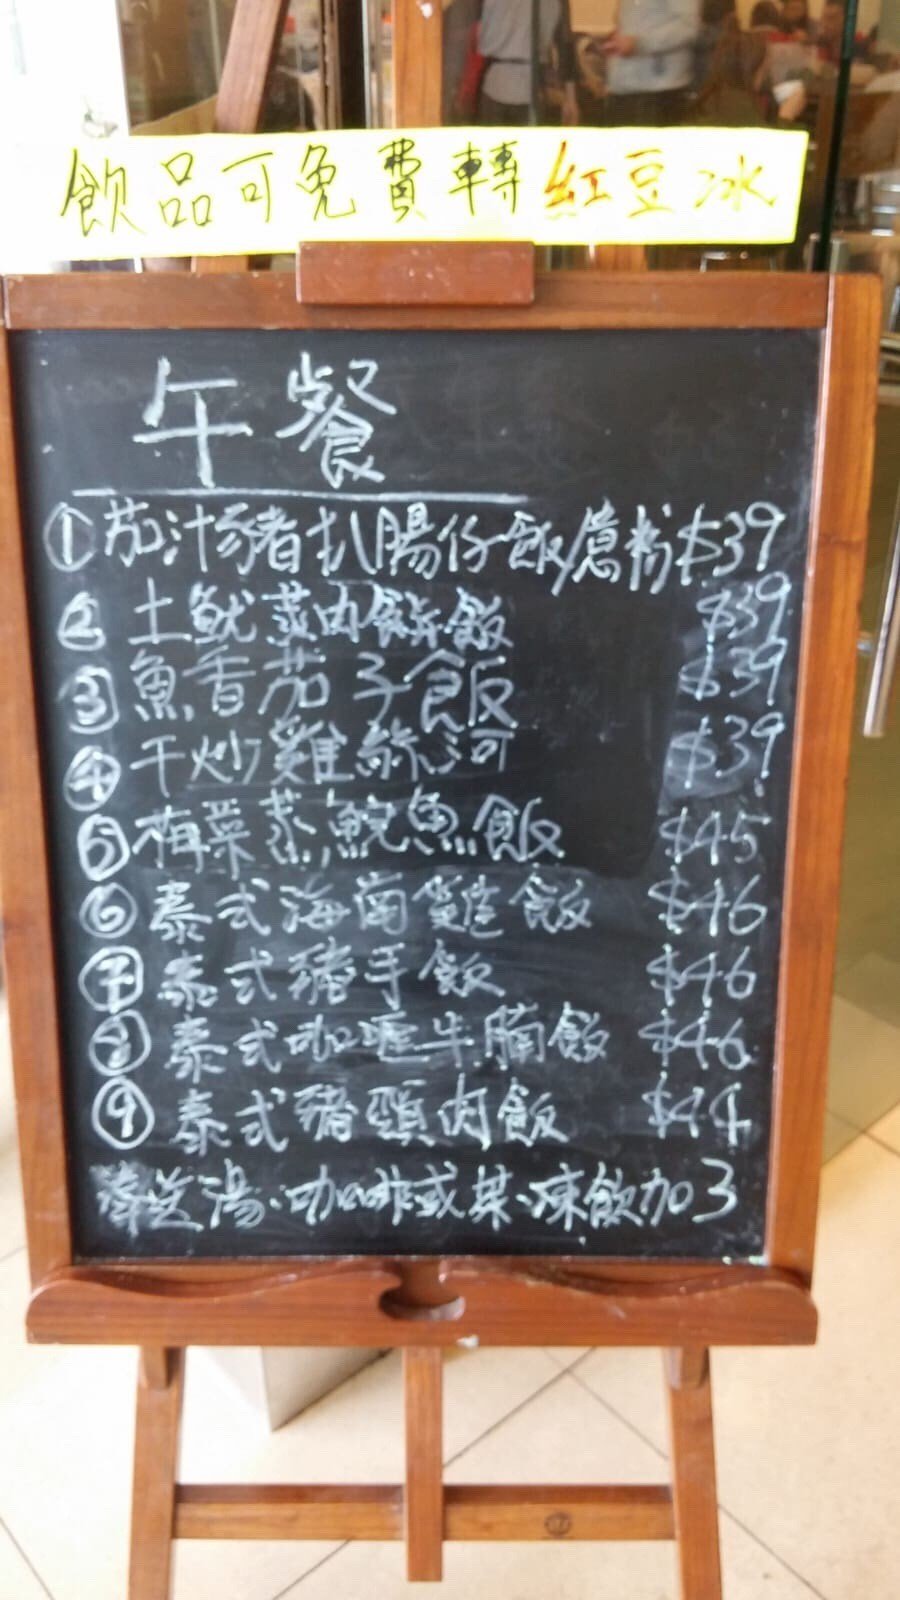 飲品可免費轉紅豆冰
午餐
①茄汁豬扒腸仔飯/意粉$39
② 土魷蒸肉餅飯 $39
③ 魚香茄子飯 $39
④ 干炒雞絲河 $39
⑤ 梅菜蒸鯇魚飯 $45
⑥ 泰式海南雞飯 $46
⑦ 泰式豬手飯 $46
⑧ 泰式咖喱牛腩飯 $46
⑨ 泰式豬頸肉飯 $44
送湯·咖啡或茶·凍飲加3